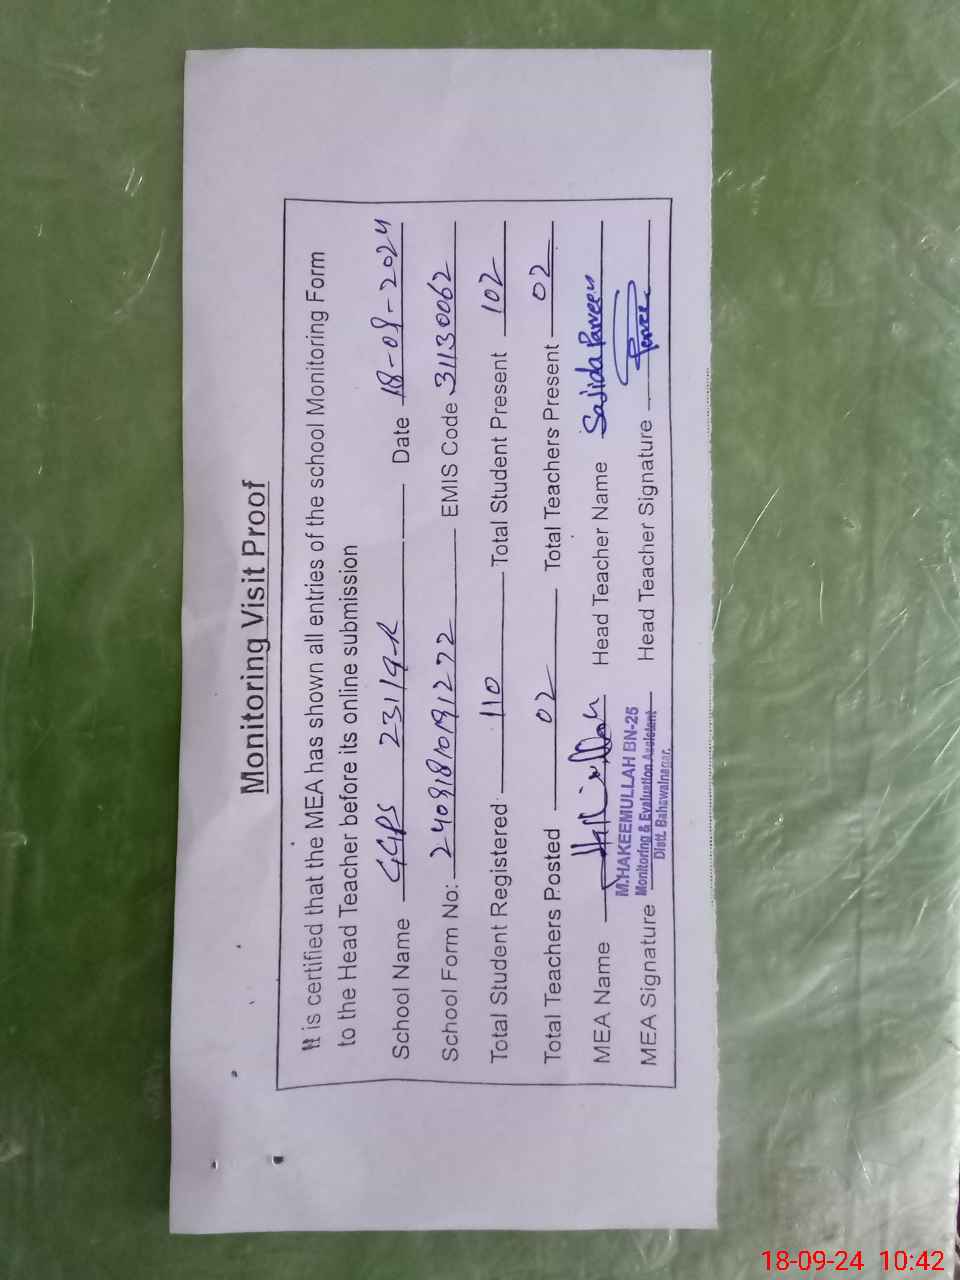 Monitoring Visit Proof
It is certified that the MEA has shown all entries of the school Monitoring Form
to the Head Teacher before its online submission
School Name GGPS 231/9-R Date 18-09-2024
School Form No: 24091810191272 EMIS Code 31130062
Total Student Registered: 110 Total Student Present 102
Total Teachers Posted 02 Total Teachers Present 02
MEA Name Head Teacher Name Sajida Parveen
M.HAKEEMULLAH BN-25
MEA Signature Monitoring & Evaluation Assistent Head Teacher Signature
Distt. Bahawalnagar.
18-09-24 10:42